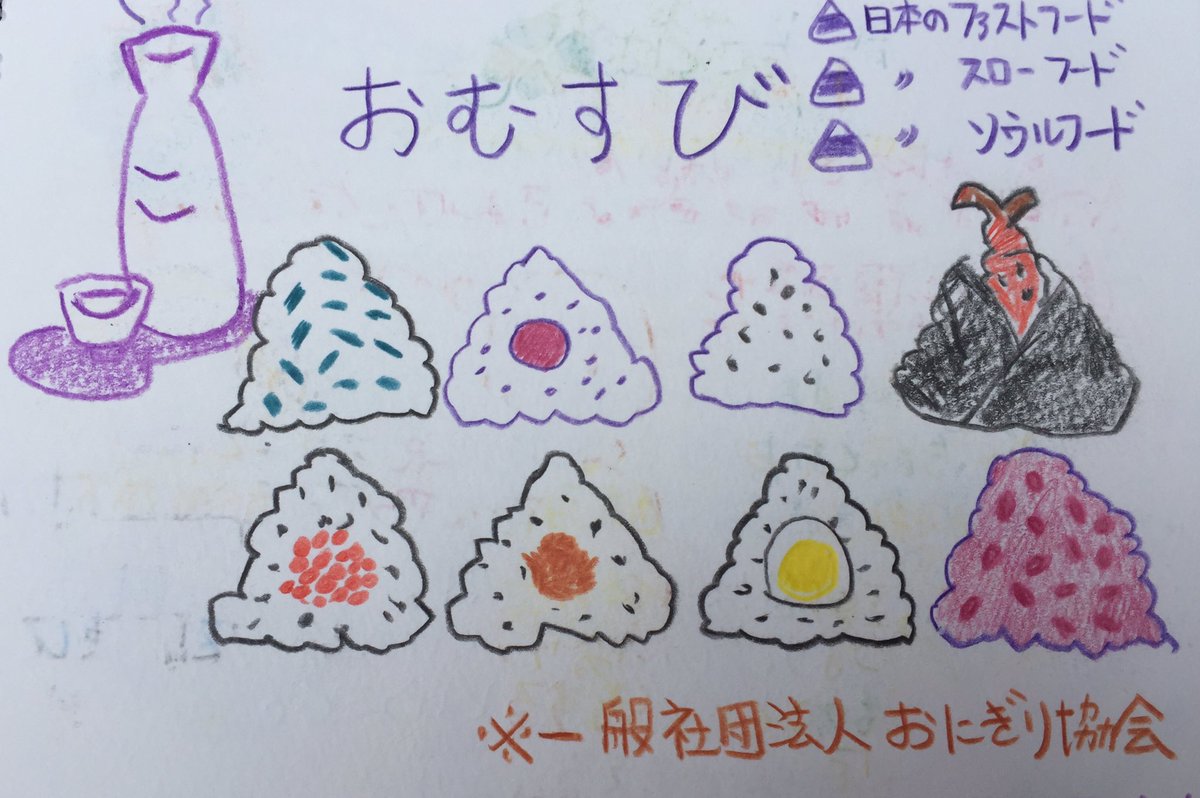 おむすび
日本のファストフード
〃 スローフード
〃 ソウルフード
※一般社団法人おにぎり協会